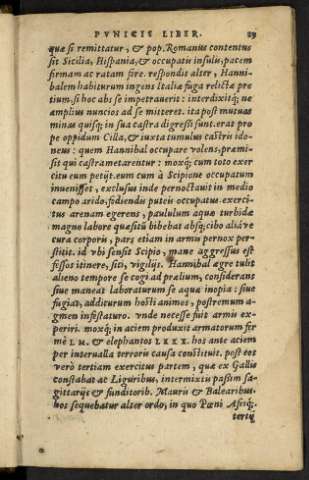 PVNICIS LIBER. 29
quæ si remittatur, & pop. Romanus contentus
sit Sicilia, Hispania, & occupatis insulis, pacem
firmam ac ratam fire. respondit alter, Hanni-
balem habiturum ingens Italiæ fuga relictæ pre
tium. si hoc abs se impetrauerit: interdixitq; ne
amplius nuncios ad se mitteret. ita post mutuas
minas quisq; in sua castra digressi sunt. erat pro
pe oppidum Cilla, & iuxta tumulus castris ido-
neus: quem Hannibal occupare volens, præmi-
sit qui castra metarentur: moxq; cum toto exer
citu eum petijt. eum cum à Scipione occupatum
inuenisset, exclusus inde pernoctauit in medio
campo arido, fodiendis puteis occupatus. exerci-
tus arenam egerens, paululum aquæ turbidæ
magno labore quæsitū bibebat absq; cibo aliáve
cura corporis, pars etiam in armis pernox per-
stitit. id vbi sensit Scipio, mane aggressus est
fessos itinere, siti, vigilijs. Hannibal ægre tulit
alieno tempore se cogi ad prælium, considerans
siue maneat laboraturum se aqua inopia: siue
fugiat, additurum hosti animos, postremum a-
gmen infestaturo. vnde necesse fuit armis ex-
periri. moxq; in aciem produxit armatorum fer
mè L M. & elephantos LXXX. hos ante aciem
per interualla terroris causa constituit. post eos
verò tertiam exercitus partem, quæ ex Gallis
constabat ac Liguribus, intermixtis passim sa-
gittarijs & funditorib. Mauris & Balearibus.
hos sequebatur alter ordo, in quo Pœni Afriq;.
tertij